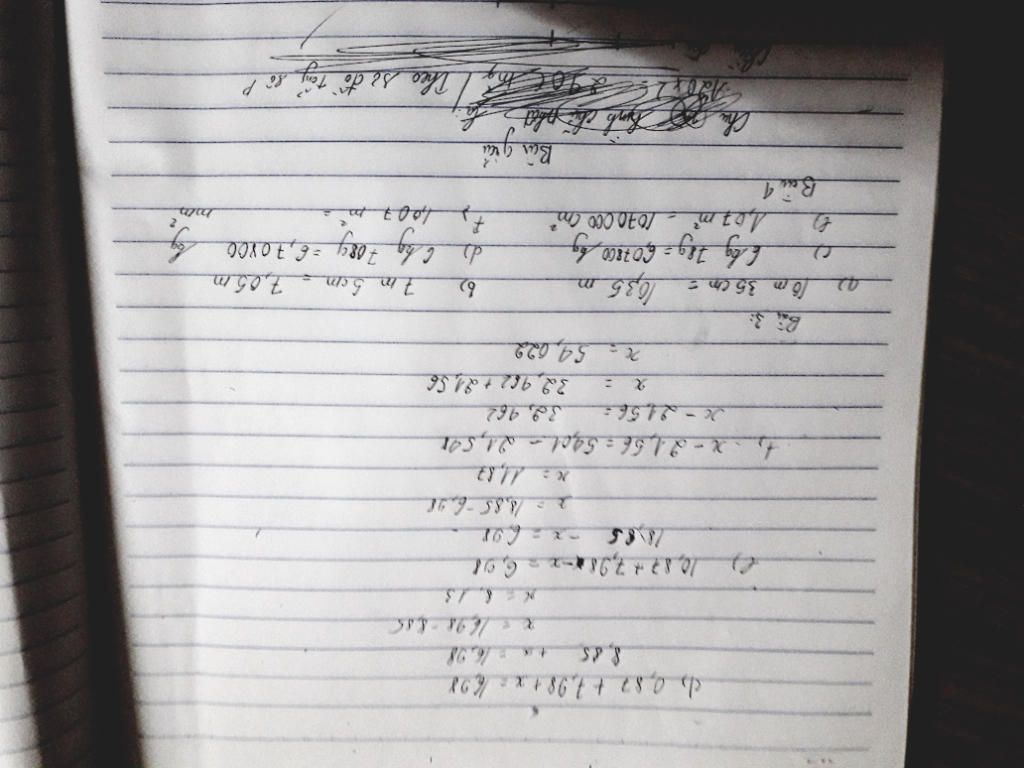 d) 0,87 + 7,98 + x = 16,98
8,85 + x = 16,98
x = 16,98 - 8,85
x = 8,13
e) 10,87 + 7,98 - x = 6,98
18,85 - x = 6,98
x = 18,85 - 6,98
x = 11,87
f, x - 21,56 = 54,01 - 21,548
x - 21,56 = 32,462
x = 32,462 + 21,56
x = 54,022
Bài 3:
a) 10 m 35 cm = 10,35 m b) 7 m 5 cm = 7,05 m
c) 6 kg 78g = 6,07800 kg d) 6 kg 708g = 6,70800 kg
e) 1,07 m² = 1070000 cm² f, 1,007 m² = mm²
Bài 4
Bài giải
Chu hình chữ nhật là
120 x 2 = 240 ( m ) Theo sơ đồ tổng số p